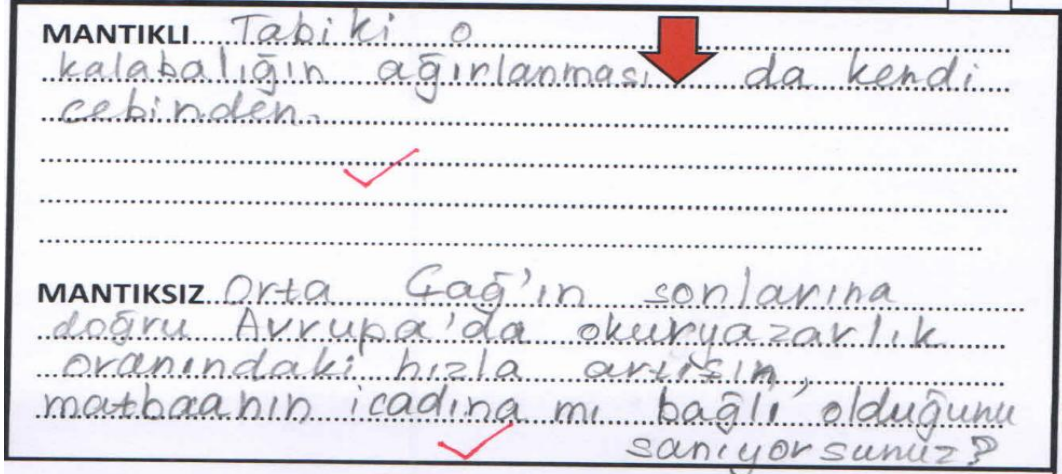 MANTIKLI Tabi ki o
kalabalığın ağırlanması da kendi
cebinden.
MANTIKSIZ Orta Çağ'ın sonlarına
doğru Avrupa'da okuryazarlık
oranındaki hızla artışın,
matbaanın icadına mı bağlı olduğunu
sanıyorsunuz?